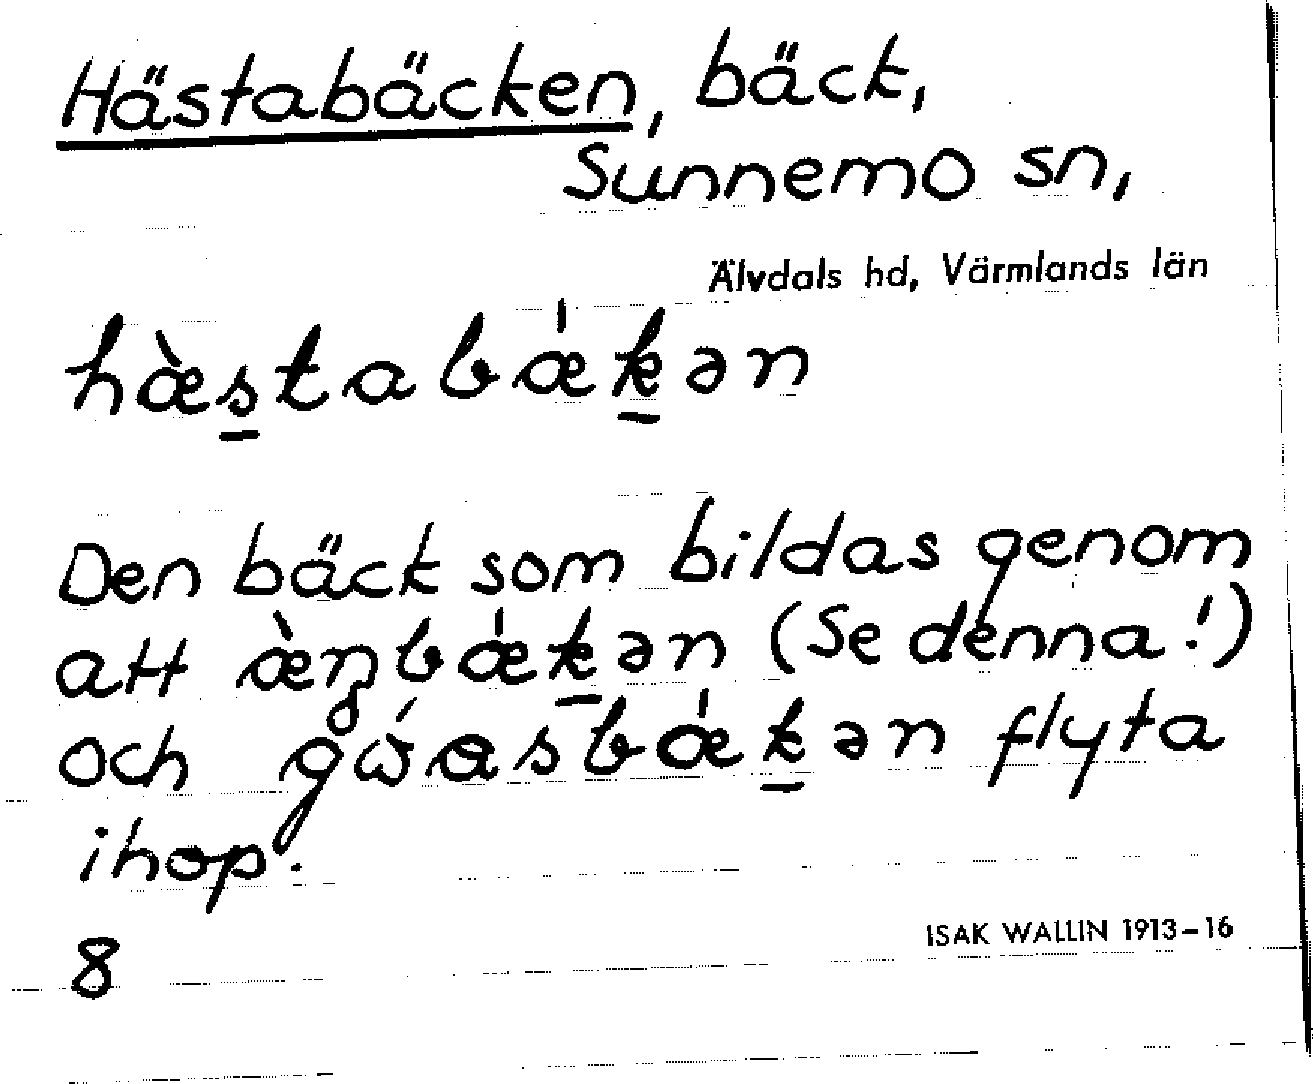 Hästabäcken, bäck,
Sunnemo sn,
Älvdals hd, Värmlands län
hæ̀s̠tabǽk̠ən
Den bäck som bildas genom
att æ̀ŋbǽk̠ən (Se denna!)
och gẃasbǽk̠ən flyta
ihop.
8
ISAK WALLIN 1913–16